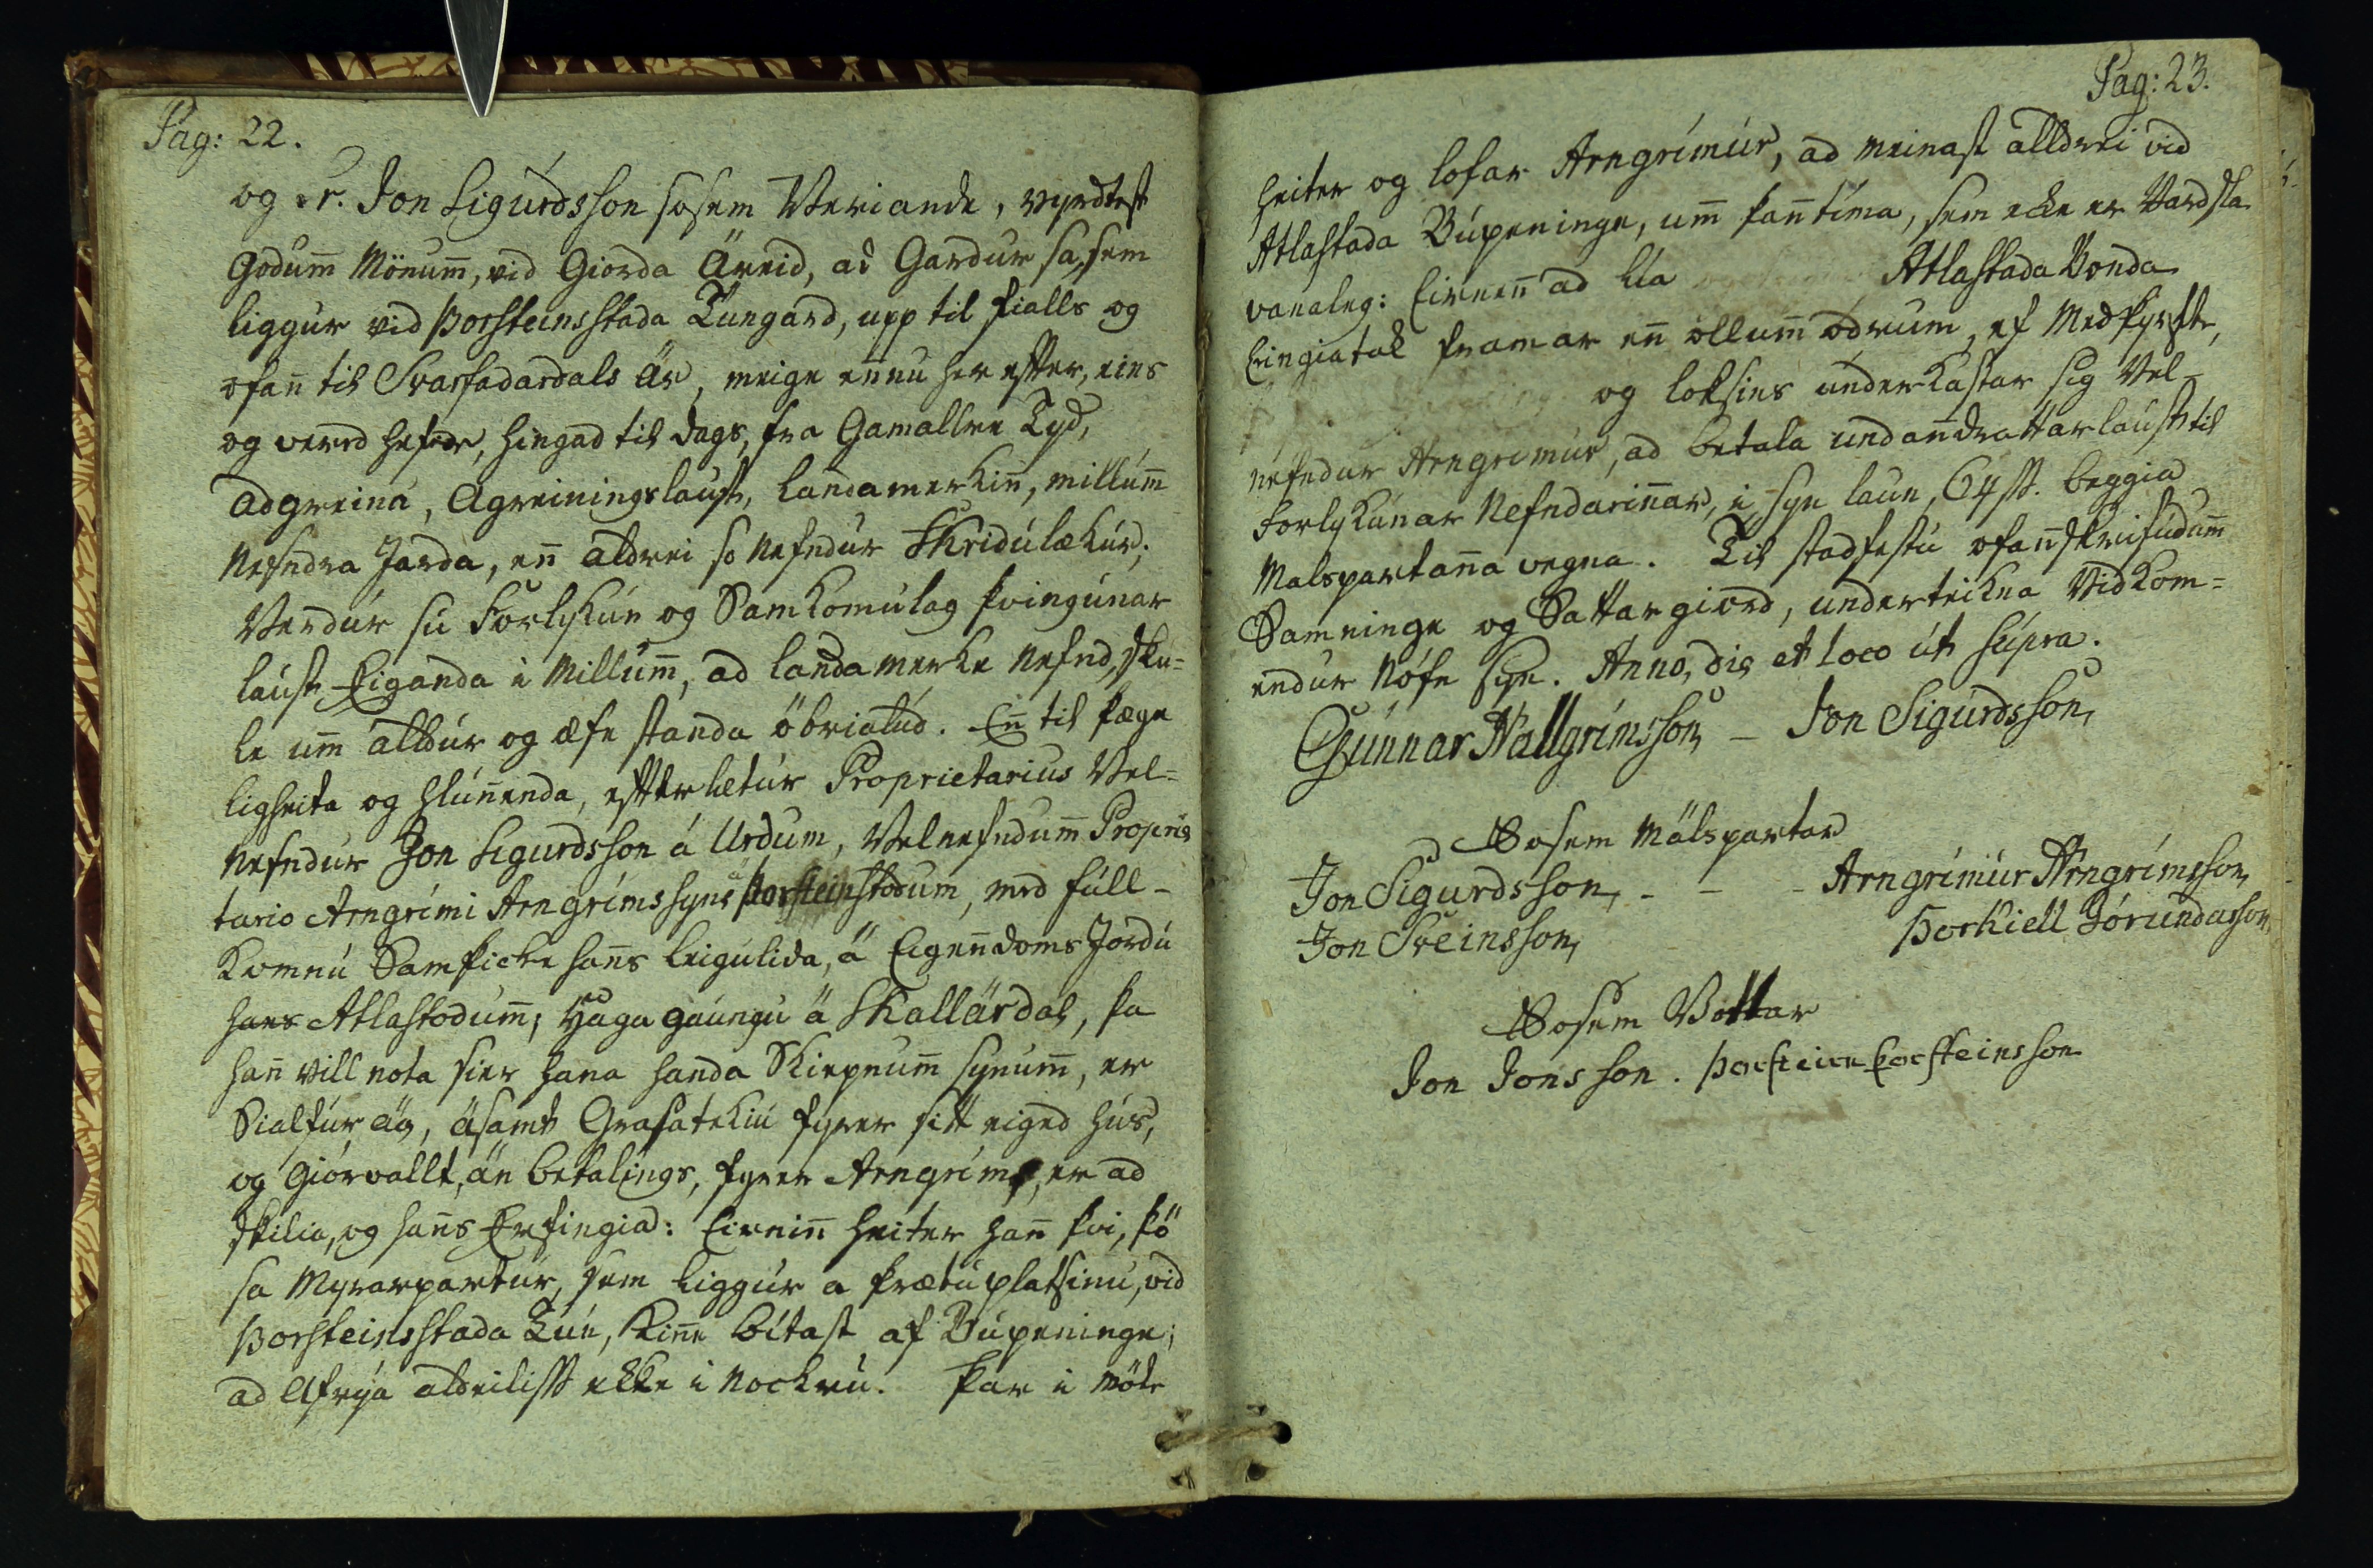 Pag: 22.
og Sr. Jon Sigurdsson sosem Veriande, virdtest
Godum̄ Mönum̄, vid Giorda Äreid, ad Gardur sa, sem
liggur vid Þorsteinsstada Tungard, upp til fialls og
ofan̄ til Svarfadardals Är, meige ennu her efter, eins
og verid hefur, hingad til dags, fra Gamallre Tyd,
adgreina, Agreiningslaust, landamerkin̄, millum̄
Nefndra Jarda, en̄ aldrei so nefndur Skridulækur;
Verdur su Forlykun og Samkomulag þvingunar
laust Eiganda i Millum̄, ad landamerke nefnd, sku=
le um̄ alldur og æfe standa öbrialud. En̄ til þæge
ligheita og hlun̄enda, effterlætur Proprietarius Vel=
nefndur Jon Sigurdsson á Urdum, Velnefndum̄ Proprie
tario Arngrimi Arngrimssyne ä Þorsteinstodum, med full-
komnu Samþicke han̄s leigulida, ä Eigen̄doms Jördu
hans Atlastodum̄; Haga gaungu ä Skallärdal, þa
han̄ vill nota sier hana handa Skiepnum̄ synum̄, er
Sialfur ä, äsamt Grasatekiu fyrer sitt eiged hus,
og Giörvallt, än betalings, fyrer Arngrim, er ad
skilia, og han̄s Erfingia: Eirnin̄ heiter han̄ þvi, þö
sa Myrarpartur, sem liggur a þrætuplatsinu, vid
Þorsteinsstada Tun, kin̄e bitast af Bupeninge;
ad Afrya aldeilisst ekke i nockru. Þar i möte
Pag: 23.
heiter og lofar Arngrimur, ad meinast alldrei vid
Atlastada Bupeninge, um̄ þan̄ tima, sem ecke er Vardsla
vanaleg: Eirnen̄ ad lia Atlastada Bonda
Eingiatak framar en̄ öllum̄ ödrum, ef Medþyrfte,
og loksins underkastar sig Vel-
nefndur Arngrimur, ad betala undan̄drattarlaust til
Forlykunar Nefndarin̄ar, i syn laun, 64 sk. beggia
Malspartan̄a vegna. Til stadfestu ofan̄skrifudum̄
Samninge og Sattargiörd, underteikna Vidkom=
endur Nöfn syn. Anno, die et loco út supra.
Gunnar Hallgrimsson, - Jon Sigurdsson,
Sosem Mälspartar
Jon Sigurdsson, - - - Arngrimur Arngrimsson,
Jon Sveinsson, Þorkiell Jörundarson,
Sosem Vottar
Jon Jonsson. Þorsteirn Þorsteinsson